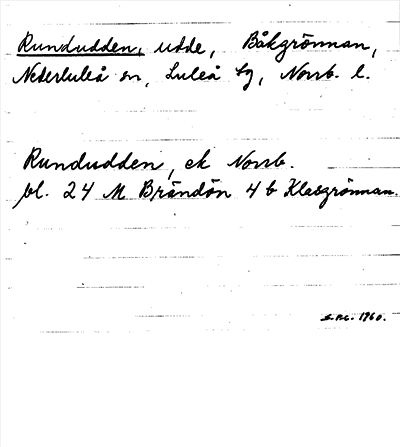 Rundudden, udde, Båkgrönnan,
Nederluleå sn, Luleå tg, Norrb. l.
Rundudden, ek Norrb.
bl. 24 M Brändön 4 b Klasgrönnan.
1960.